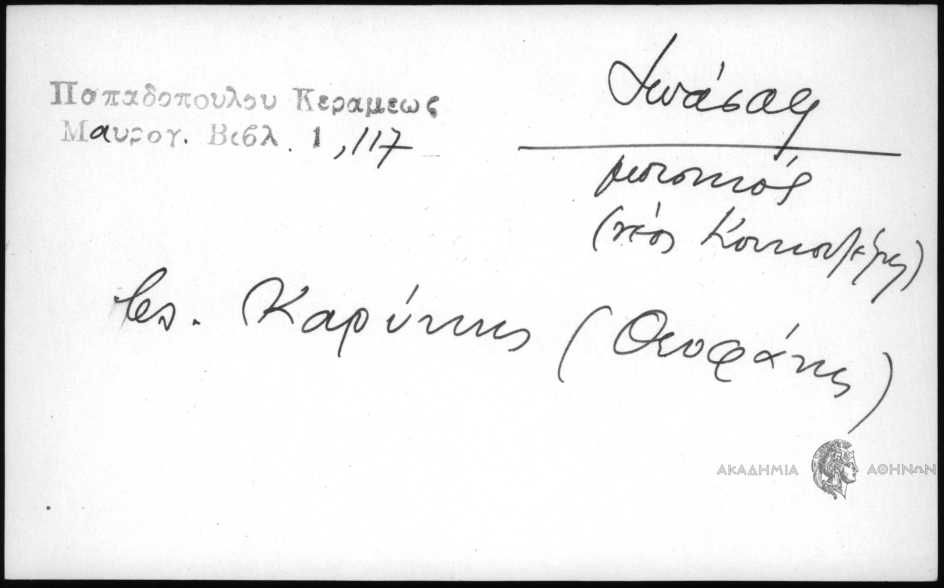 Παπαδοπουλου Κεραμεως
Μαυρογ. Βιβλ. 1, 117
Ἰωάσαφ
μουσικός
(νέος Κουκουζέλης)
Καρύκης (Θεοφάνης)
ΑΚΑΔΗΜΙΑ ΑΘΗΝΩΝ